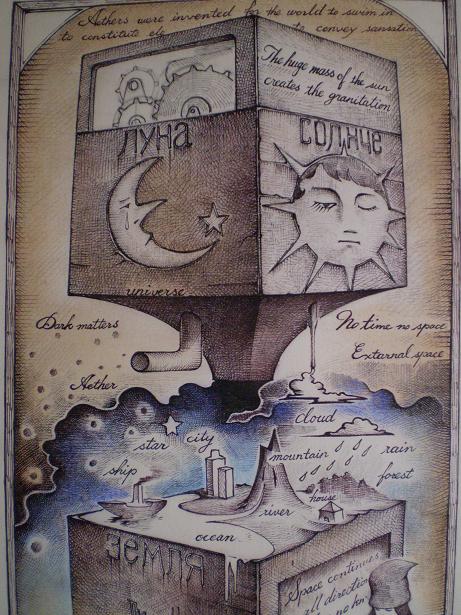 Aethers were invented for the world to swim in
to constitute to convey sensation
The huge mass of the sun
creates the granitation
ЛУНА
СОЛНЧЕ
universe
Dark matters
No time no space
External space
Aether
cloud
star city
mountain
rain
ship
forest
house
river
ocean
ЗЕМЛЯ
Space continues
all direction
no